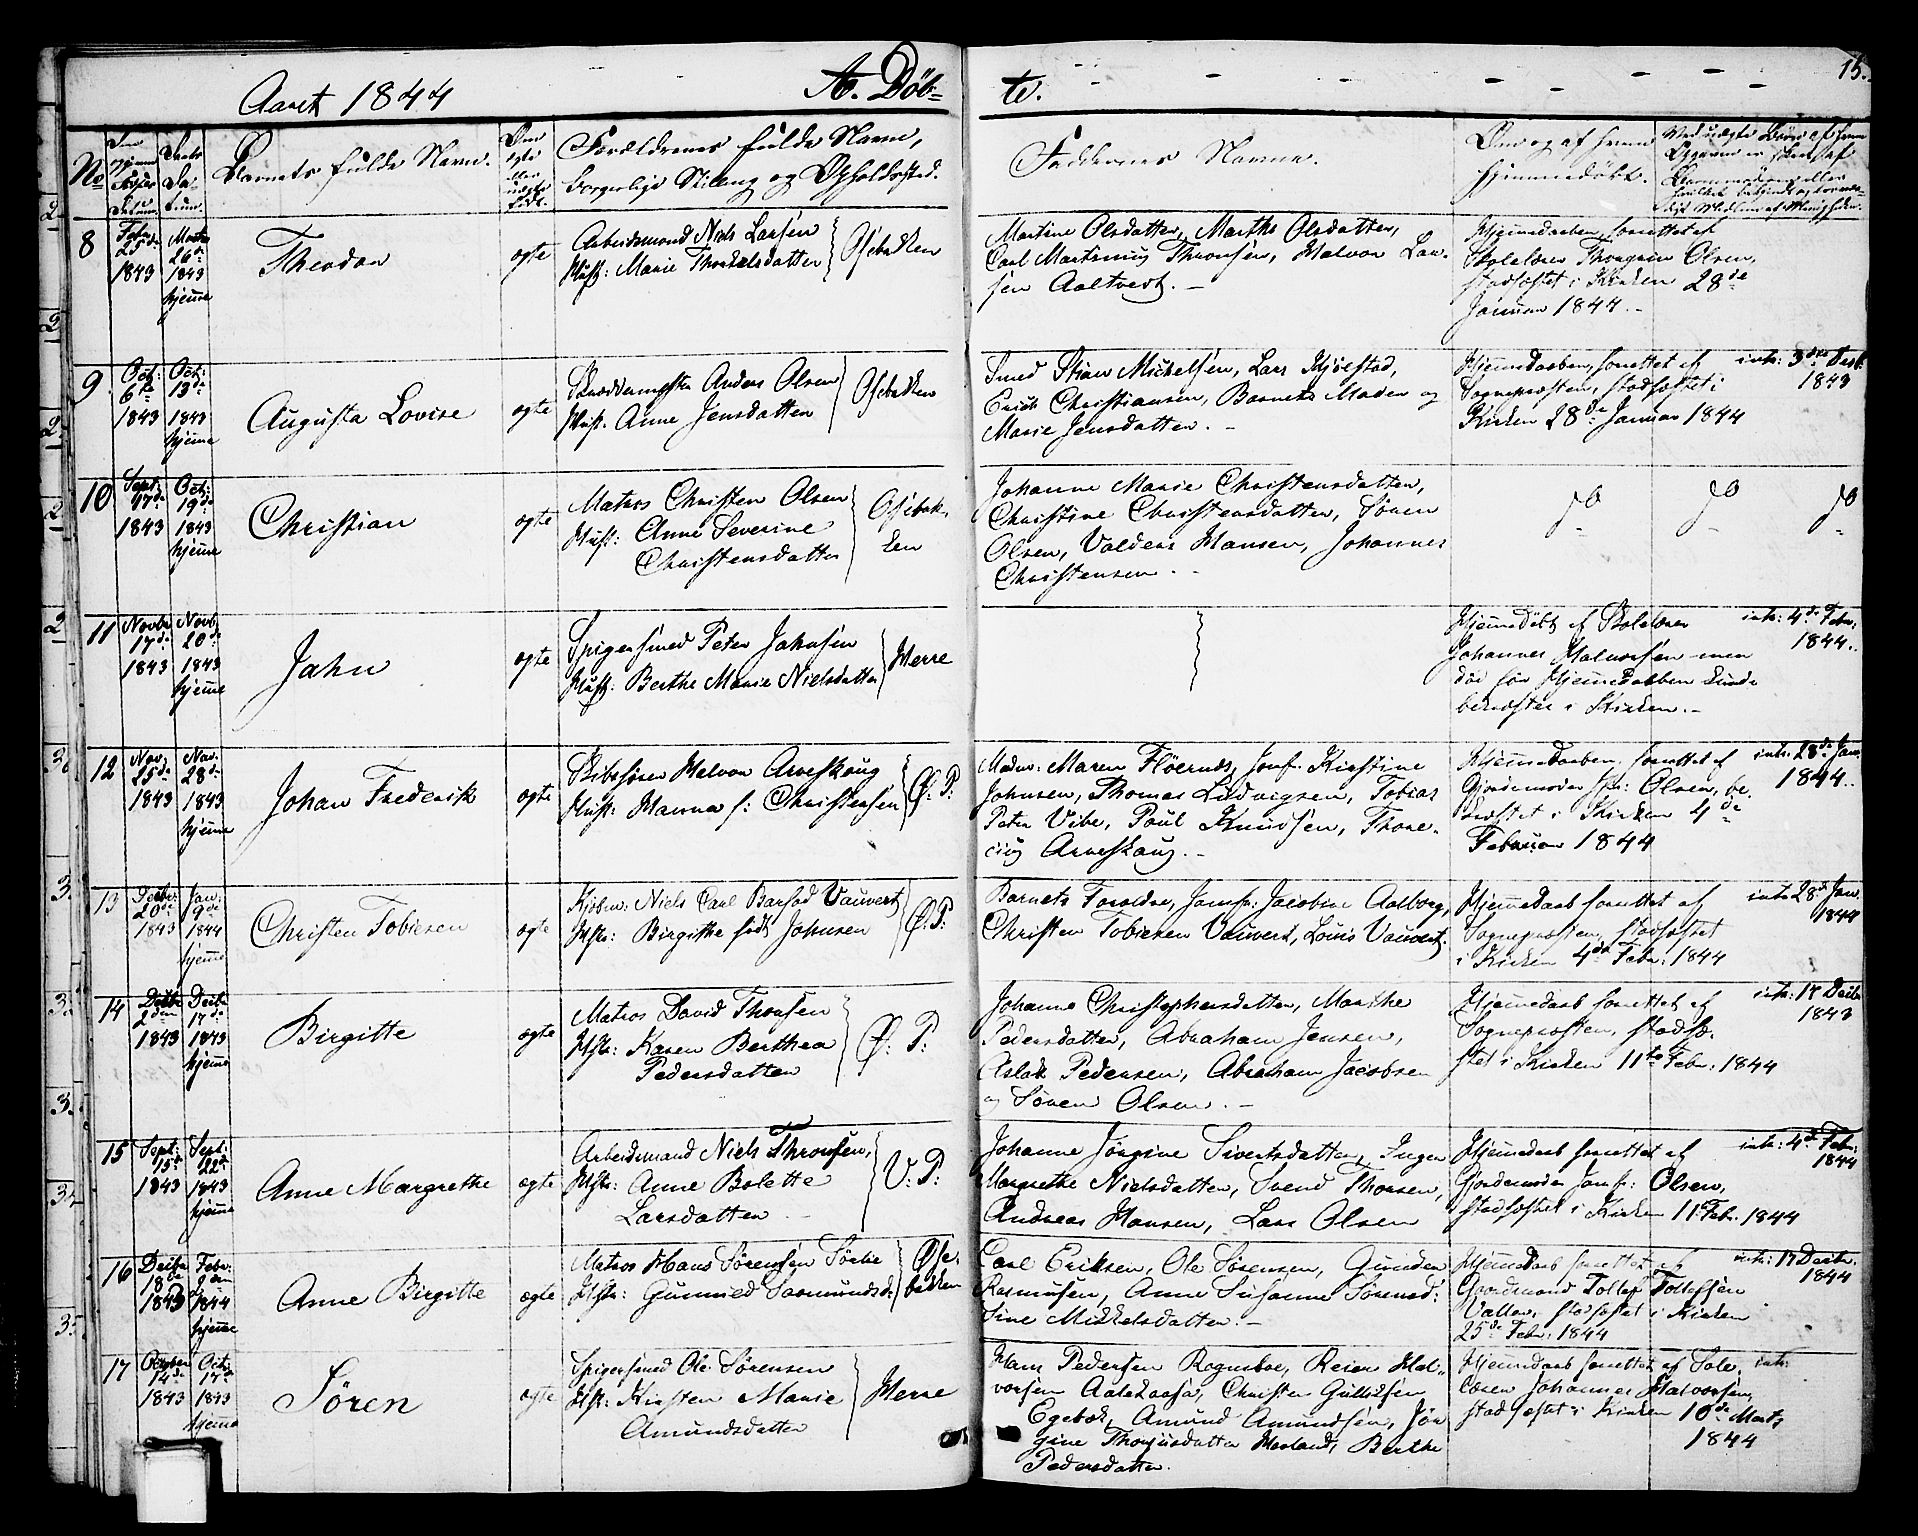 15.
Aaret 1844 A. Døb= te.
No
Barnets fulde Navn.
Om ægte eller uægte født.
Forældrenes fulde Navn,
borgerlige Stilling og Opholdssted.
Faddernes Navne.
Om og af hvem
hjemmedøbt.
8
Febr. 25de 1843
Marts 26de 1843 hjemme
Theodor
ægte
Arbeidsmand Niels Larsen
Hust: Marie Thorkelsdatter
Osebakken
Martine Olsdatter, Marthe Olsdatter,
Carl Martinius Thronsen, Halvor Lar-
sen Aaltvedt. -
Hjemmedaaben, forrettet af
Skolelærer Thorgrim Olsen,
stadfæstet i Kirken 28de
Januar 1844. -
9.
Oct: 6te 1843
Oct: 13de 1843 hjemme
Augusta Lovise
ægte
Anders Olsen
Hust. Anne Jensdatter
Osebakken
Smed Stian Mickelsen, Lars Kjølstad,
Erich Christiansen, Barnets Moder og
Marie Jensdatter. -
Hjemmedaaben, forrettet af
Sognepræsten, stadfæstet i
Kirken 28de Januar 1844
intr: 3die Decb.
1843
10
Sept. 17de 1843
Oct: 19de 1843 hjemme
Christian
ægte
Matros Christen Olsen
Hust: Anne Severine
Christensdatter
Osebak-
ken
Johanne Marie Christensdatter,
Christine Christensdatter, Søren
Olsen, Valders Hansen, Johannes
Christensen. -
11
Novbr 17de 1843
Novb. 20de 1843 hjemme
Jahn
ægte
Spigersmed Peter Jahnsen
Hust: Berthe Marie Nielsdatter
Herre
Hjemmedøbt af Skolelærer
Johannes Halvorsen men
død før Hjemmedaaben kunde
bekræftes i Kirken. -
intr: 4de Febr.
1844.
12
Nov. 25de 1843
Nov. 28de 1843 hjemme
Johan Frederik
ægte
Skibsfører Halvor Arveskoug
Hust: Hanna f: Christensen
Ø: P:
Mdme: Maren Fløernes, Jomf. Kirstine
Johnsen, Thomas Ludvigsen, Tobias
Peter Vibe, Poul Knudsen, Thore-
cius Arveskoug. -
Hjemmedaaben, forrettet af
Gjordemoder Jfr: Olsen, be-
kræftet i Kirken 4de
Februar 1844
intr: 28de Jan.
1844.
13
Decbr. 20de 1843
Jan: 9de 1844 hjemme
Christen Tobiesen
ægte
Kjøbm: Niels Carl Barfod Vauvert
Hstr: Birgitte født Johnsen
Ø: P:
Barnets Forældre, Jomfr: Jacobine Aalborg,
Christen Tobiesen Vauvert, Louis Vauvert.
Hjemmedaab forrettet af
Sognepræsten, stadfæstet
i Kirken 4de Febr: 1844
intr. 28de Jan.
1844
14
Decbr 2den 1843
Decbr 17de 1843 hjemme
Birgitte
ægte
Matros David Thorsen
Hstr: Karen Berthea
Pedersdatter
Ø: P:
Johanne Christophersdatter, Marthe
Pedersdatter, Abraham Jensen,
Aslak Pedersen, Abraham Jacobsen
og Søren Olsen. -
Hjemmedaab forrettet af
Sognepræsten, stadfæ-
stet i Kirken 11te Febr. 1844
intr: 17 Decbr
1843
15
Sept: 15de 1843
Sept: 22de 1843 hjemme
Anne Margrethe
ægte
Arbeidsmand Niels Thronsen,
Hstr: Anne Bolette
Larsdatter
V: P:
Johanne Jørgine Sivertsdatter, Inger
Margrethe Nielsdatter, Svend Thorsen,
Andreas Hansen, Lars Olsen
Hjemmedaab forrettet af
Gjordemoder Jomfr: Olsen,
stadfæstet i Kirken 11 Febr. 1844
intr: 4de Febr:
1844
16
Decbr 18de 1843
Febr. 2den 1844 hjemme
Anne Birgitte
ægte
Matros Hans Sørensen Sørlie
Hstr: Gunnild Sarmundsd.
Øse-
bakken
Carl Eriksen, Ole Sørensen, Gunder
Rasmusen, Anne Susanne Sørensd:
Sine Mikkelsdatter. -
Hjemmedaab forrettet af
Gaardmand Tollef Tollefsen
Valler, stadfæstet i Kirken
25de Febr: 1844
intr: 17 Decbr.
1844
17
October 14de 1843
Oct: 17de 1843 hjemme
Søren
ægte
Spigersmed Ole Sørensen
Hstr: Kirsten Marie
Amundsdatter
Herre
Hans Pedersen Rognsboe, Reier Hal-
vorsen Aalekaasa, Christen Gulliksen
Egebæk, Amund Amundsen, Jør-
gine Thorjusdatter Herland, Berthe
Pedersdatter.
Hjemmedaab forrettet af Sole-
læren Johannes Halvorsen,
stadfæstet i Kirken 10de Marts
1844
intr: